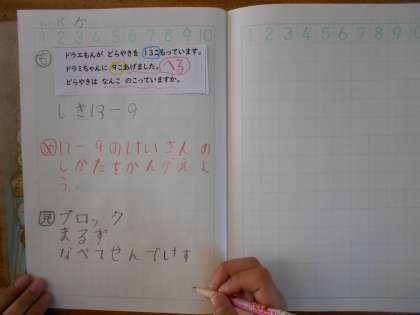 か
1 2 3 4 5 6 7 8 9 10
1 2 3 4 5 6 7 8 9 10
も
ドラエもんが どらやきを 13こもっています。
ドラミちゃんに 9こあげました。
どらやきは なんこ のこっていますか。
しき13-9
め 13-9のけいさんの
しかたをかんがえよ
う。
見 ブロック
まるず
なべてせんでけす